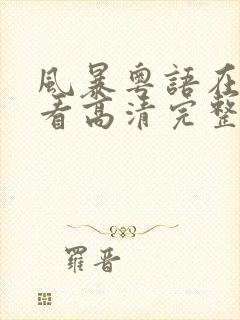 風暴粵語在
看高清完整
羅晋